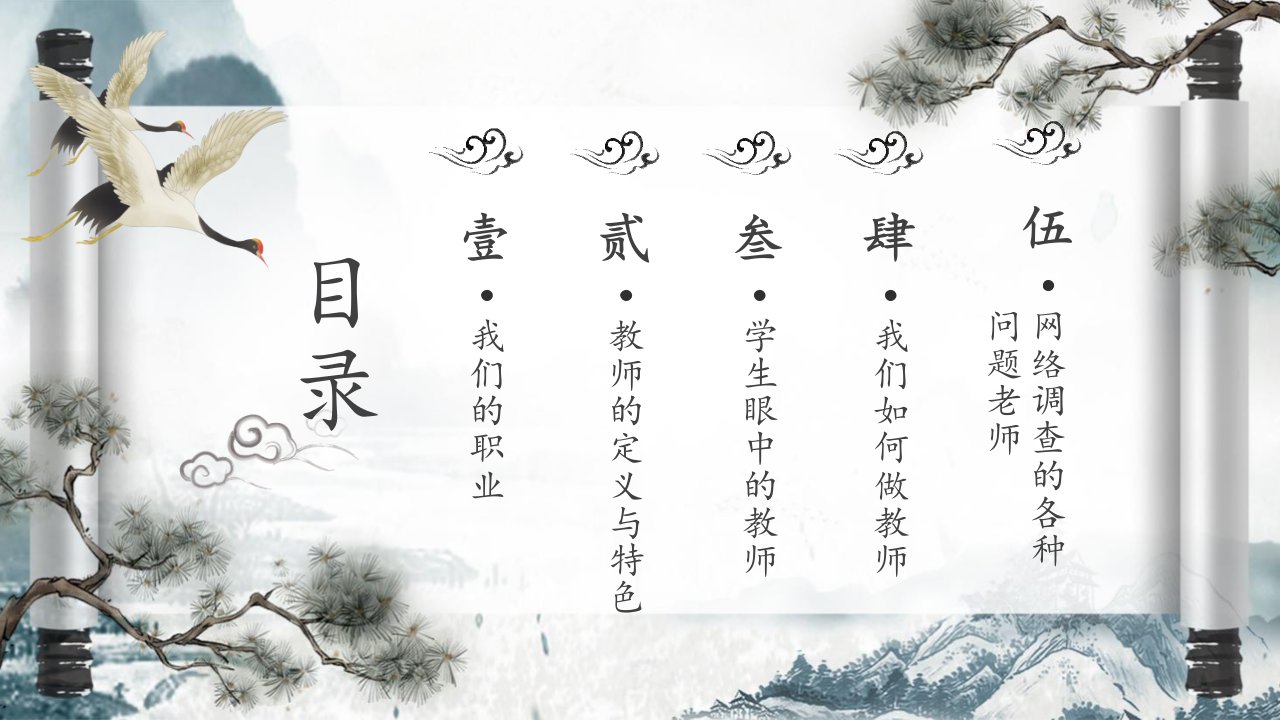 目录
壹
•我们的职业
贰
•教师的定义与特色
叁
•学生眼中的教师
肆
•我们如何做教师
伍
•网络调查的各种
问题老师